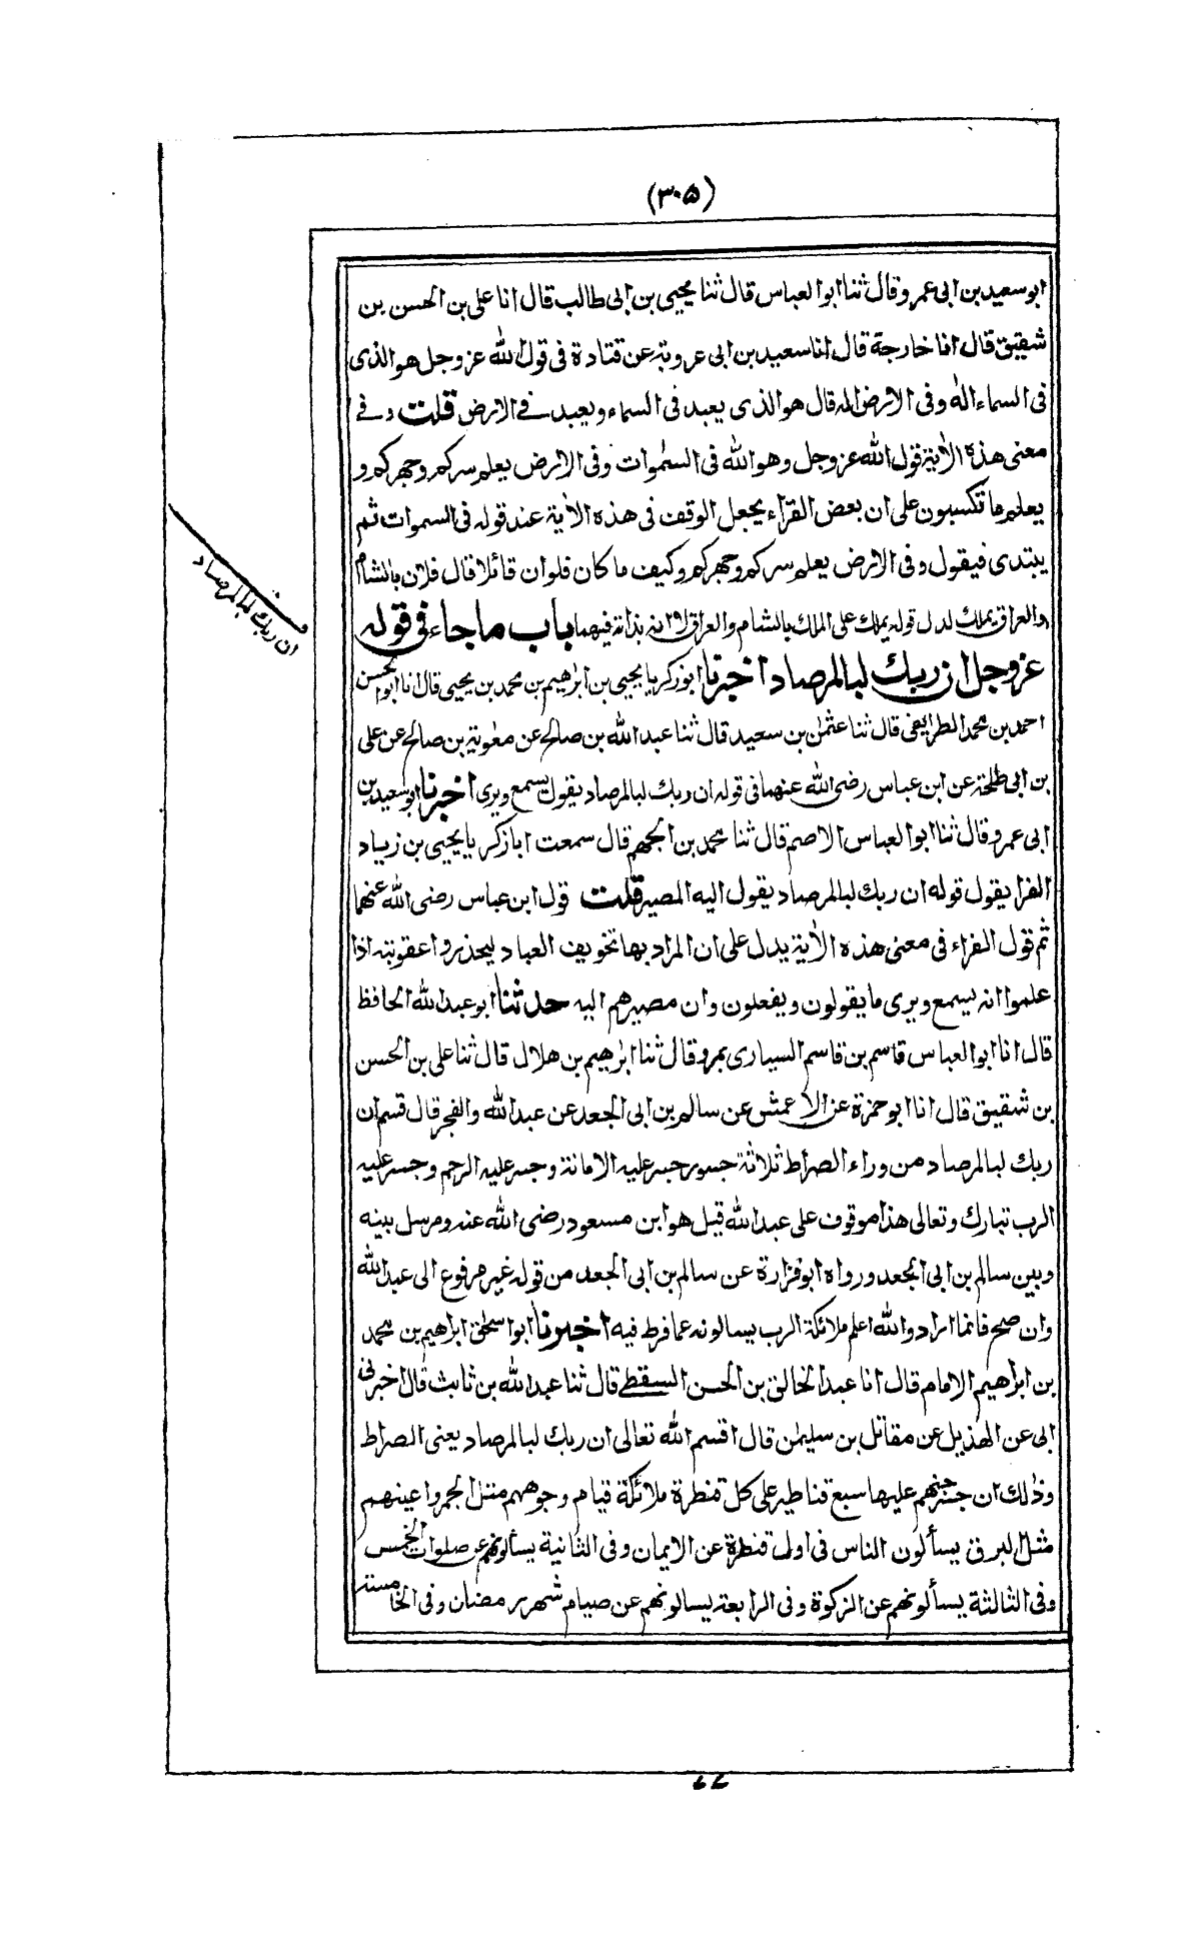 (۳۰۵)
ابو سعيد بن ابى عمرو قال ثنا ابو العباس قال ثنا يحيى بن ابى طالب قال انا على بن الحسن بن
شقيق قال انا خارجة قال انا سعيد بن ابى عروبة عن قتادة فى قول الله عز وجل هو الذى
فى السماء اله وفى الارض اله قال هو الذى يعبد فى السماء ويعبد فى الارض قلت وفى
معنى هذه الاية قول الله عز وجل وهو الله فى السموات وفى الارض يعلم سركم وجهركم و
يعلم ما تكسبون على ان بعض القراء يجعل الوقف فى هذه الاية عند قوله فى السموات ثم
يبتدى فيقول وفى الارض يعلم سركم وجهركم وكيف ما كان فلو ان قائلا قال فلان بالشام
والعراق يملك لدل قوله يملك على الملك بالشام والعراق لا انه بذاته فيهما باب ما جاء فى قوله
عز وجل ان ربك لبالمرصاد اخبرنا ابو زكريا يحيى بن ابراهيم بن محمد بن يحيى قال انا ابو الحسن
احمد بن محمد الطرايفى قال ثنا عثمٰن بن سعيد قال ثنا عبد الله بن صالح عن معٰوية بن صالح عن على
بن ابى طلحة عن ابن عباس رضى الله عنهما فى قوله ان ربك لبالمرصاد يقول يسمع ويرى اخبرنا ابو سعيد بن
ابى عمرو قال ثنا ابو العباس الاصم قال ثنا محمد بن الجهم قال سمعت ابا زكريا يحيى بن زياد
الفرا يقول قوله ان ربك لبالمرصاد يقول اليه المصير قلت قول ابن عباس رضى الله عنهما
ثم قول الفراء فى معنى هذه الاية يدل على ان المراد بها تخويف العباد ليحذروا عقوبته اذا
علموا انه يسمع ويرى ما يقولون ويفعلون وان مصيرهم اليه حدثنا ابو عبد الله الحافظ
قال انا ابو العباس قاسم بن قاسم السيارى بمرو قال ثنا ابرٰهيم بن هلال قال ثنا على بن الحسن
بن شقيق قال انا ابو حمزة عن الاعمش عن سالم بن ابى الجعد عن عبد الله والفجر قال قسم ان
ربك لبالمرصاد من وراء الصراط ثلاثة جسور جسر عليه الامانة وجسر عليه الرحم وجسر عليه
الرب تبارك وتعالى هذا موقوف على عبد الله قيل هو ابن مسعود رضى الله عنه ومرسل بينه
وبين سالم بن ابى الجعد ورواه ابو فزارة عن سالم بن ابى الجعد من قوله غير مرفوع الى عبد الله
وان صح فانما اراد والله اعلم ملائكة الرب يسالونه عما فرط فيه اخبرنا ابو اسحٰق ابراهيم بن محمد
بن ابراهيم الامام قال انا عبد الخالق بن الحسن السقطى قال ثنا عبد الله بن ثابت قال اخبرنى
ابى عن الهذيل عن مقاتل بن سليمٰن قال اقسم الله تعالى ان ربك لبالمرصاد يعنى الصراط
وذلك ان جسر جهنم عليها سبع قناطير على كل قنطرة ملائكة قيام وجوههم مثل الجمر واعينهم
مثل البرق يسألون الناس فى اول قنطرة عن الايمان وفى الثانية يسألونهم عن صلوات الخمس
وفى الثالثة يسألونهم عن الزكوة وفى الرابعة يسالونهم عن صيام شهر رمضان وفى الخامسة
ان ربك لبالمرصاد